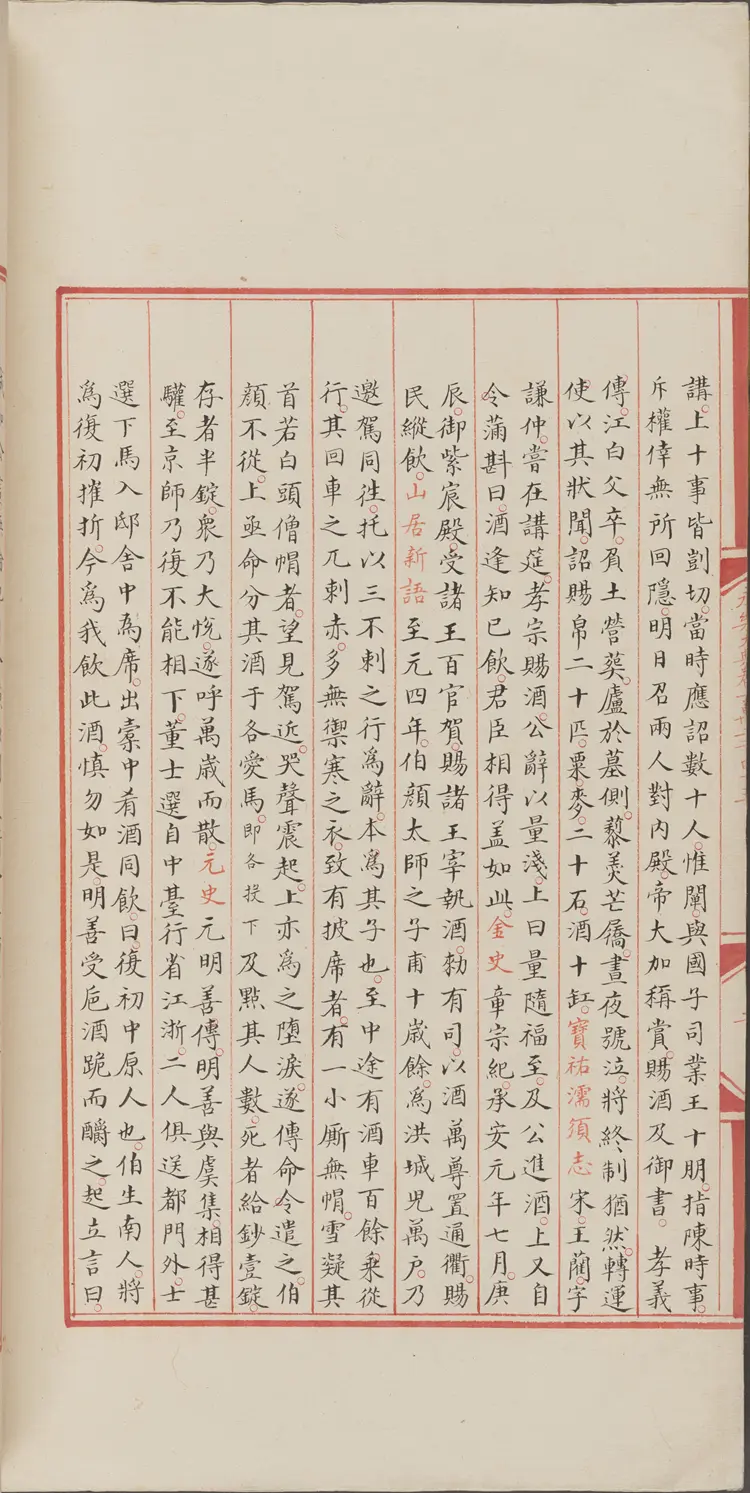 講。上十事皆剴切。當時應詔數十人。惟闡。與國子司業王十朋。指陳時事。
斥權倖無所回隱。明日召兩人對内殿。帝大加稱賞。賜酒及御書。 孝義
傳。江白父卒。負土營葬。廬於墓側。藜羮芒屩。晝夜號泣。將終制猶然。轉運
使以其狀聞。詔賜帛二十匹。粟。麥。二十石。酒十缸。寶祐濡須志 宋。王藺。字
謙仲。嘗在講筵。孝宗賜酒。公辭以量淺。上曰量隨福至。及公進酒。上又自
令滿斟曰。酒逢知已飲。君臣相得盖如此。金史 章宗紀。承安元年七月。庚
辰。御紫宸殿。受諸王百官賀。賜諸王宰執酒。勑有司。以酒萬尊置通衢。賜
民縱飲。山居新語 至元四年。伯顔太師之子甫十歲餘。爲洪城兒萬户。乃
邀駕同徃。托以三不剌之行爲辭。本爲其子也。至中途有酒車百餘。乗從
行。其回車之兀剌赤。多無禦寒之衣。致有披席者。有一小厮無帽。雪凝其
首若白頭僧帽者。望見駕近。哭聲震起。上亦爲之墮淚。遂傳命令遣之。伯
顔不從。上亟命分其酒于各愛馬。即各投下 及點其人數。死者給鈔壹錠。
存者半錠。衆乃大悦。遂呼萬歲而散。元史 元明善傳。明善與虞集。相得甚
驩。至京師乃復不能相下。董士選自中臺行省江浙。二人俱送都門外。士
選下馬入邸舍中爲席。出橐中肴酒同飲。曰。復初中原人也。伯生南人。將
爲復初摧折。今爲我飲此酒。慎勿如是。明善受巵酒跪而釂之。起立言曰。